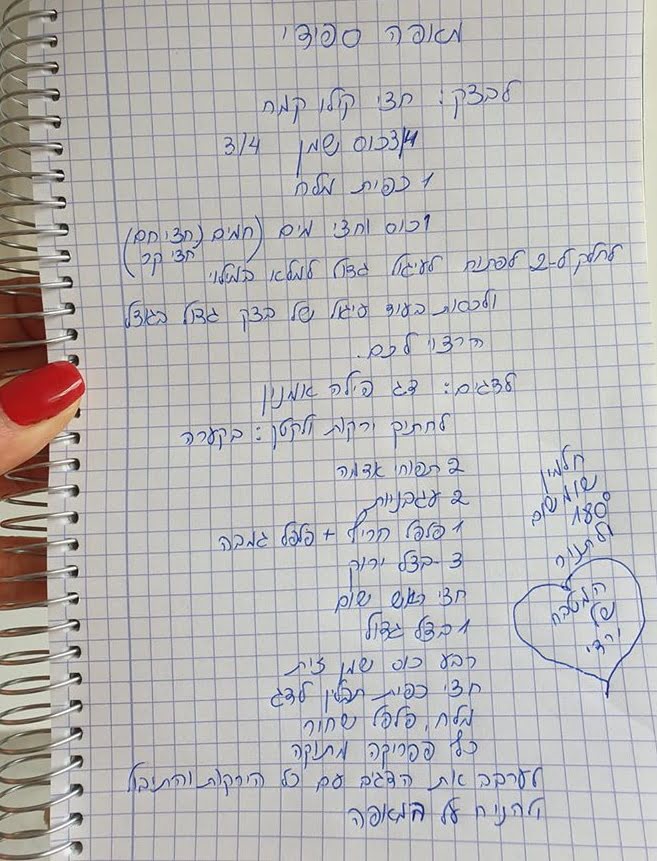 מאפה ספידי
לבצק: חצי קילו קמח
3/4 כוס שמן 3/4
1 כפית מלח
1 כוס וחצי מים (חמים (חצי חם)
חצי קר)
לחלק ל-2 לפתוח לעיגול גדול למלא במלוי
ולכסות בעוד עיגול של בצק גדול בגודל
הרצוי לכם.
לדגים: דג פילה אמנון
לחתוך ירקות ולקטן: בקערה
2 תפוחי אדמה
2 עגבניות
1 פלפל חריף + פלפל גמבה
3 - בצל ירוק
חצי ראש שום
1 בצל גדול
רבע כוס שמן זית
חצי כפית תבלין לדג
מלח, פלפל שחור
כף פפריקה מתוקה
לערבב את הדגים עם כל הירקות והתיבול
ולהניח על המאפה
חלמון
שומשום
180°
ולתנור
המטבח
של
ורדי